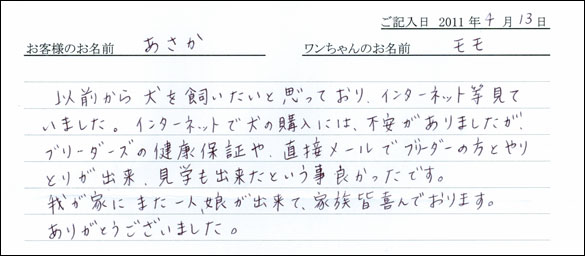 ご記入日 2011年4月13日
お客様のお名前 あさか ワンちゃんのお名前 モモ
以前から犬を飼いたいと思っており、インターネット等見て
いました。インターネットで犬の購入には、不安がありましたが、
ブリーダーズの健康保証や、直接メールでブリーダーの方とやり
とりが出来、見学も出来たという事良かったです。
我が家にまた一人、娘が出来て、家族皆喜んでおります。
ありがとうございました。